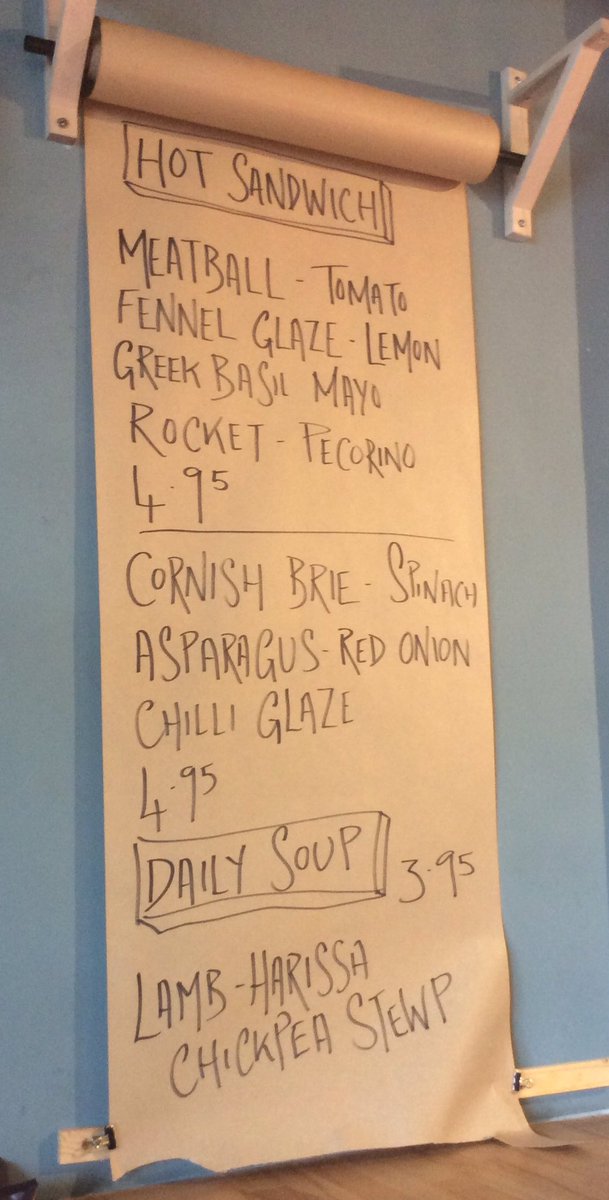 HOT SANDWICH
MEATBALL - TOMATO
FENNEL GLAZE - LEMON
GREEK BASIL MAYO
ROCKET - PECORINO
4.95
CORNISH BRIE - SPINACH
ASPARAGUS - RED ONION
CHILLI GLAZE
4.95
DAILY SOUP 3.95
LAMB - HARISSA
CHICKPEA STEWP